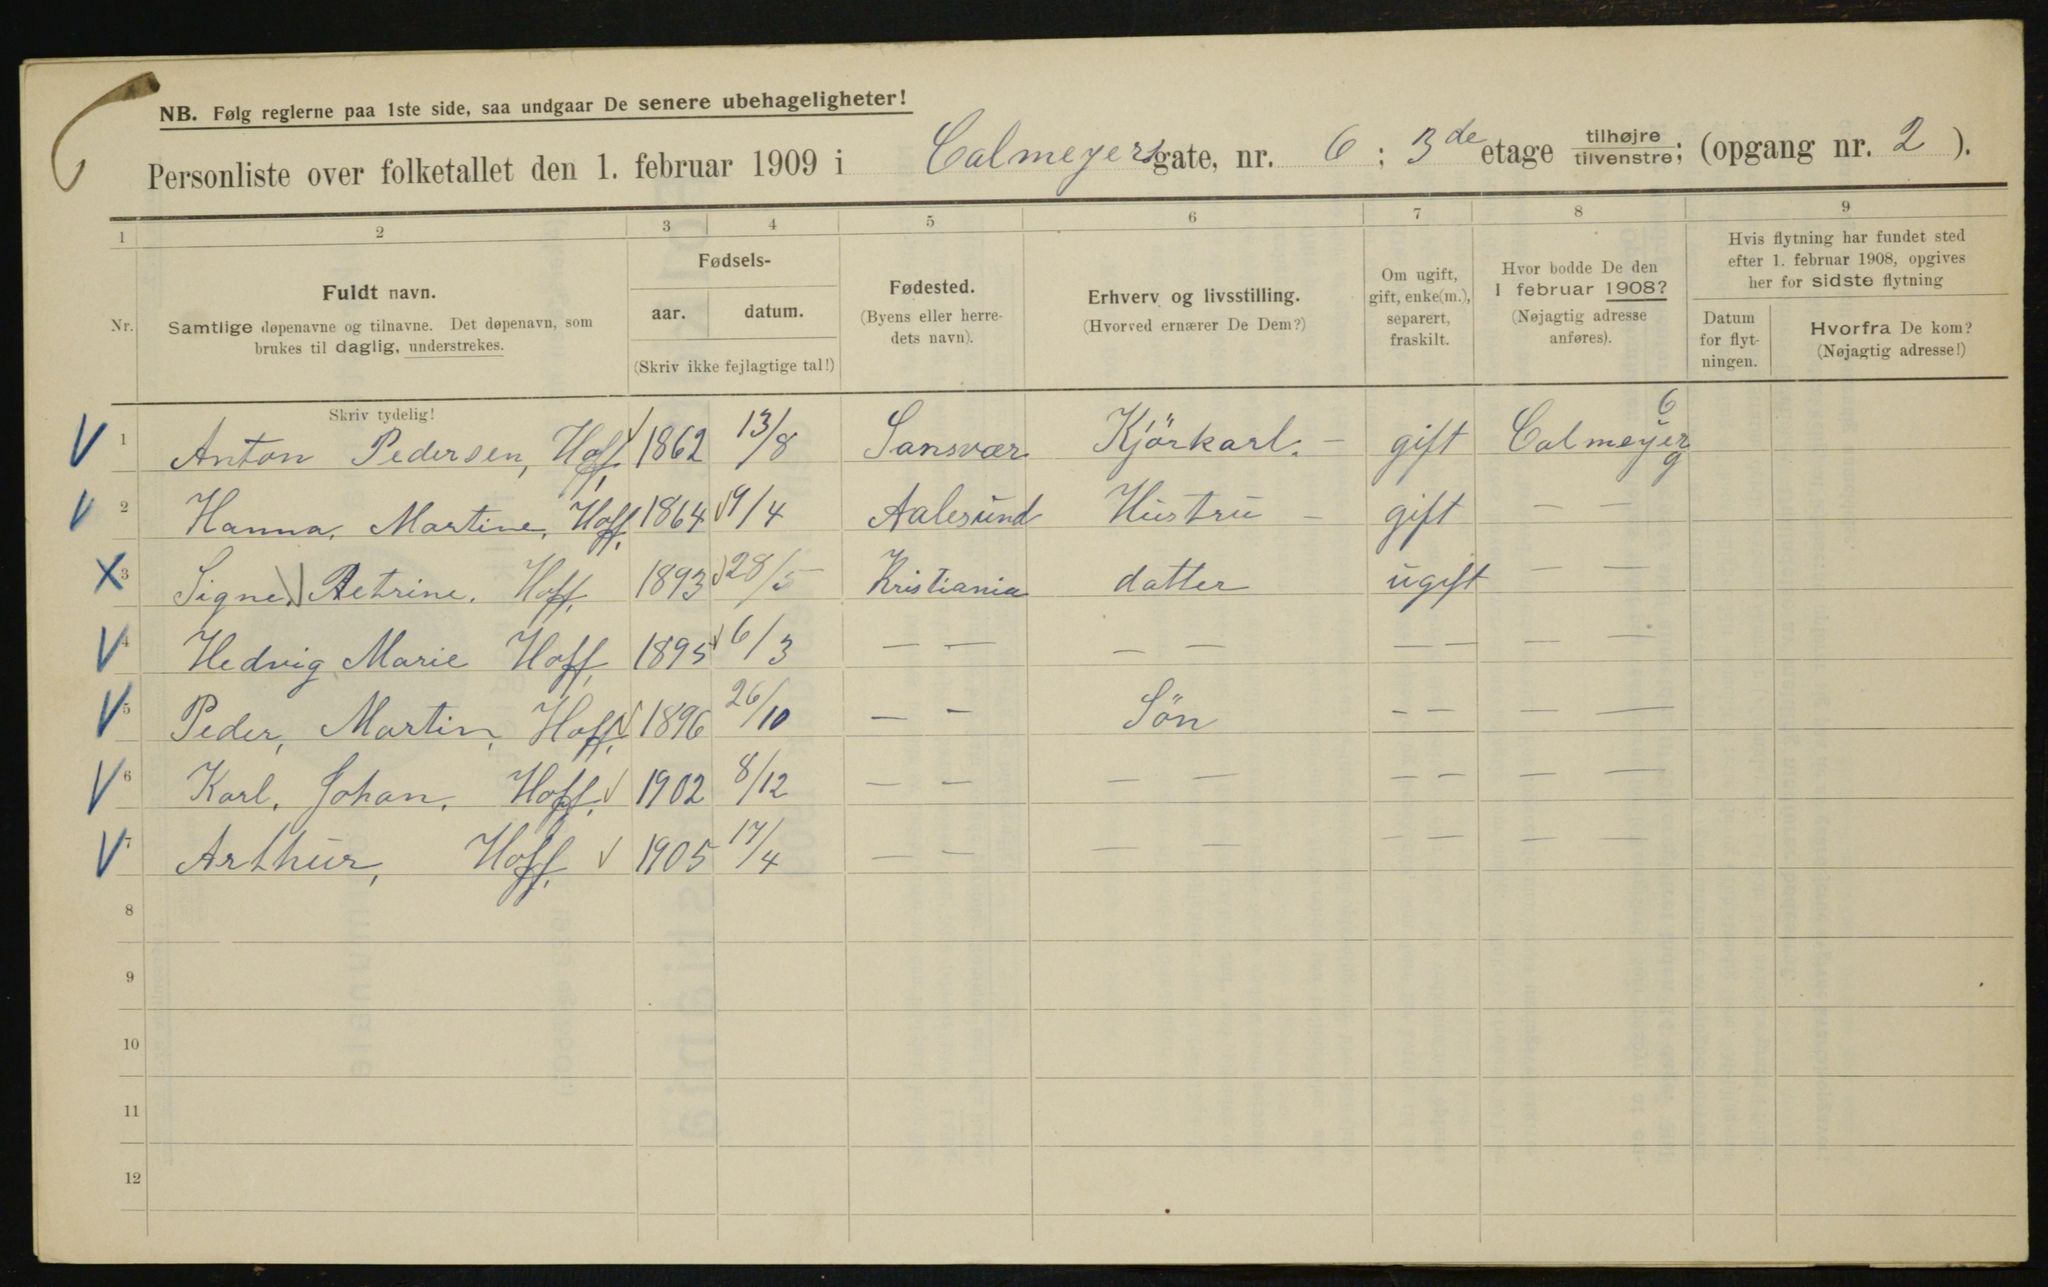 NB. Følg reglerne paa 1ste side, saa undgaar De senere ubehageligheter!
Personliste over folketallet den 1. februar 1909 i Calmeyersgate, nr. 6; 3de etage tilhøjre tilvenstre; (opgang nr. 2).
1 2 3 4 5 6 7 8 9
Nr.
Fuldt navn.
Samtlige døpenavne og tilnavne. Det døpenavn, som
brukes til daglig, understrekes.
Skriv tydelig!
Fødsels-
aar. datum.
(Skriv ikke fejlagtige tal!)
Fødested.
(Byens eller herre-
dets navn).
Erhverv og livsstilling.
(Hvorved ernærer De Dem?)
Om ugift,
gift, enke(m.),
separert,
fraskilt.
Hvor bodde De den
1 februar 1908?
(Nøjagtig adresse
anføres).
Hvis flytning har fundet sted
efter 1. februar 1908, opgives
her for sidste flytning
Datum
for flyt-
ningen.
Hvorfra De kom?
(Nøjagtig adresse!)
V 1 Anton Pedersen, Hoff, 1862 13/8 Sansvær Kjörkarl. – gift Calmeyer g 6
V 2 Hanna, Martine, Hoff. 1864 9/4 Aalesund Hustru – gift — —
X 3 Signe. Petrine. Hoff. 1893 28/5 Kristiania datter ugift — —
V 4 Hedvig Marie Hoff. 1895 6/3 — — — — — — — —
V 5 Peder, Martin, Hoff. 1896 26/10 — — Sön — — — —
V 6 Karl, Johan, Hoff. 1902 8/12 — — — — — — — —
V 7 Arthur, Hoff. 1905 17/4 — — — — — — — —
8
9
10
11
12